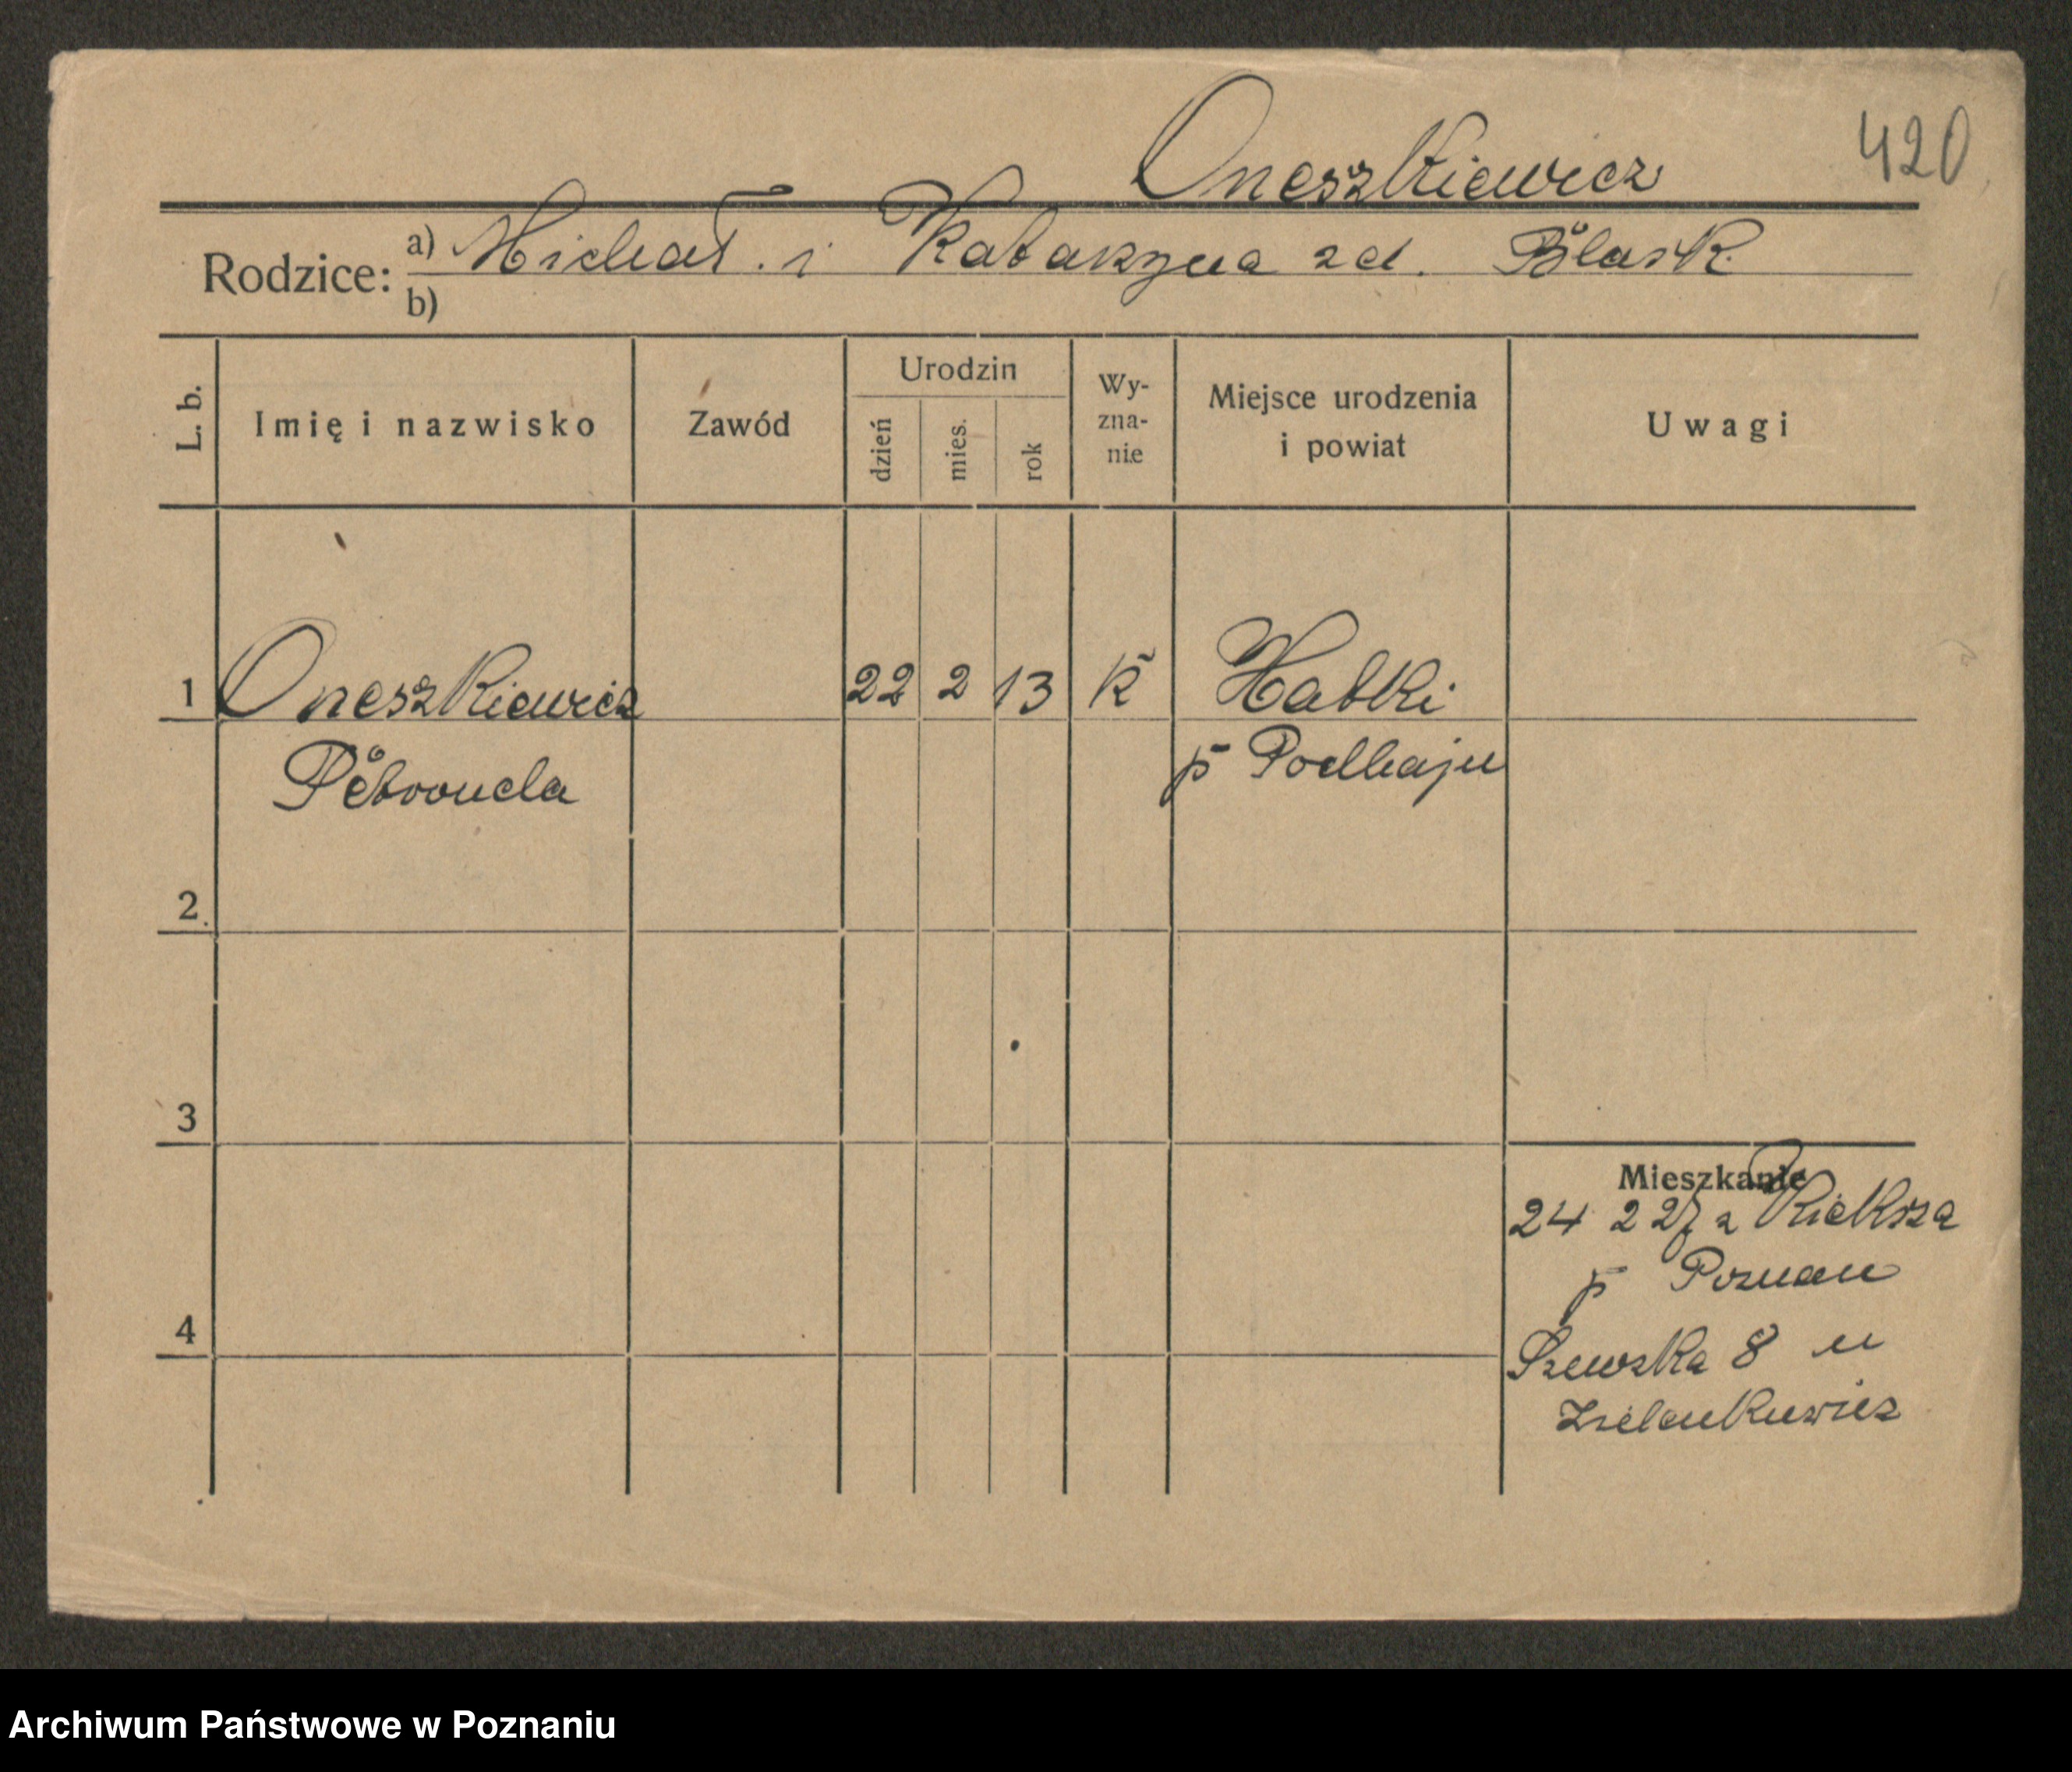 Oneszkiewicz
420
Rodzice: a) Michał. i Katarzyna zd. Blask
b)
L. b.
Imię i nazwisko
Zawód
Urodzin
dzień
mies.
rok
Wy-
zna-
nie
Miejsce urodzenia
i powiat
Uwagi
1 Oneszkiewicz 22 2 13 k Hatki
Petronela p Podhaju
2
3
Mieszkanie
24 2 27 z Kiekrza
p Poznań
4
Szewska 8 u
Archiwum Państwowe w Poznaniu